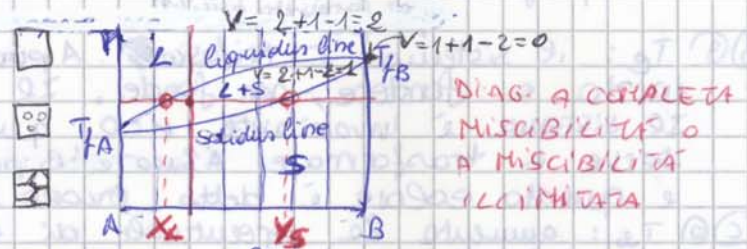 V = 2+1-1=2
V=1+1-2=0
T
L
liquidus line
V=2+1-2=1
L+S
TfB
TfA
solidus line
S
A
XL
YS
B
DIAG. A COMPLETA
MISCIBILITÀ O
A MISCIBILITÀ
ILLIMITATA